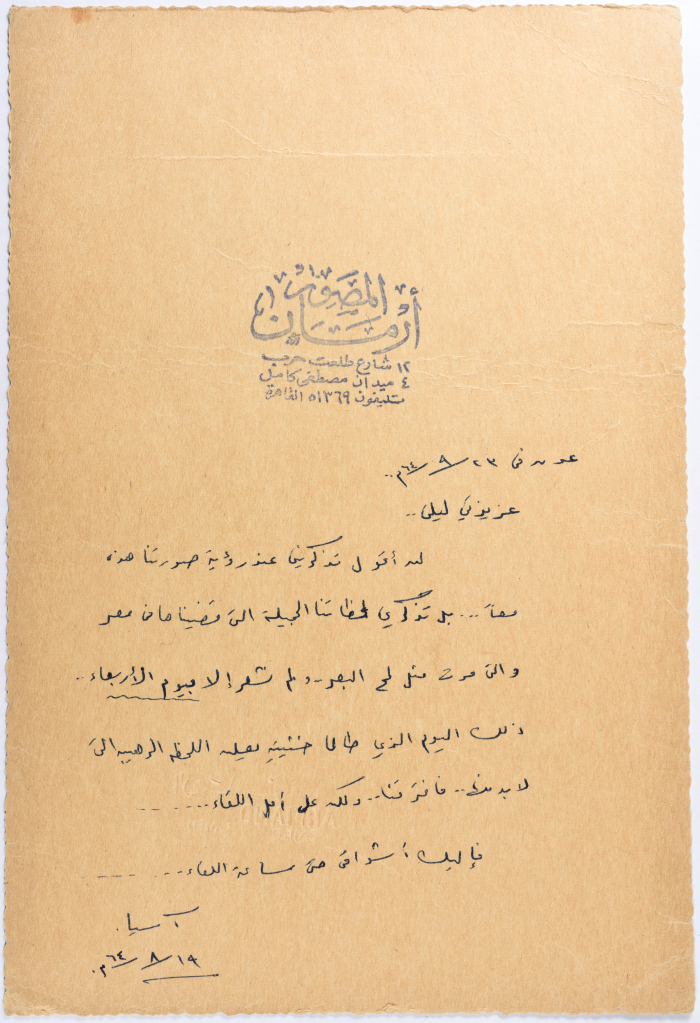 المصور
أرمان
١٢ شارع طلعت حرب
٤ ميدان مصطفى كامل
تليفون ٥١٣٦٩ القاهرة
عدن في ٢٣/٩/٦٤م..
عزيزتي ليلى..
لن أقول تذكريني عند رؤية صورتنا هذه
معاً... بل تذكري لحظاتنا الجميلة التي قضيناها في مصر
والتي مرت مثل لمح البصر.. ولم نشعر إلا بيوم الأربعاء..
ذلك اليوم الذي طالما خشيته يعلن اللحظة الرهيبة التي
لابد منها.. فافترقنا.. ولكن على أمل اللقاء........
فإليك أشواقي حتى ساعة اللقاء........
آسيا.
١٩/٨/٦٤م.